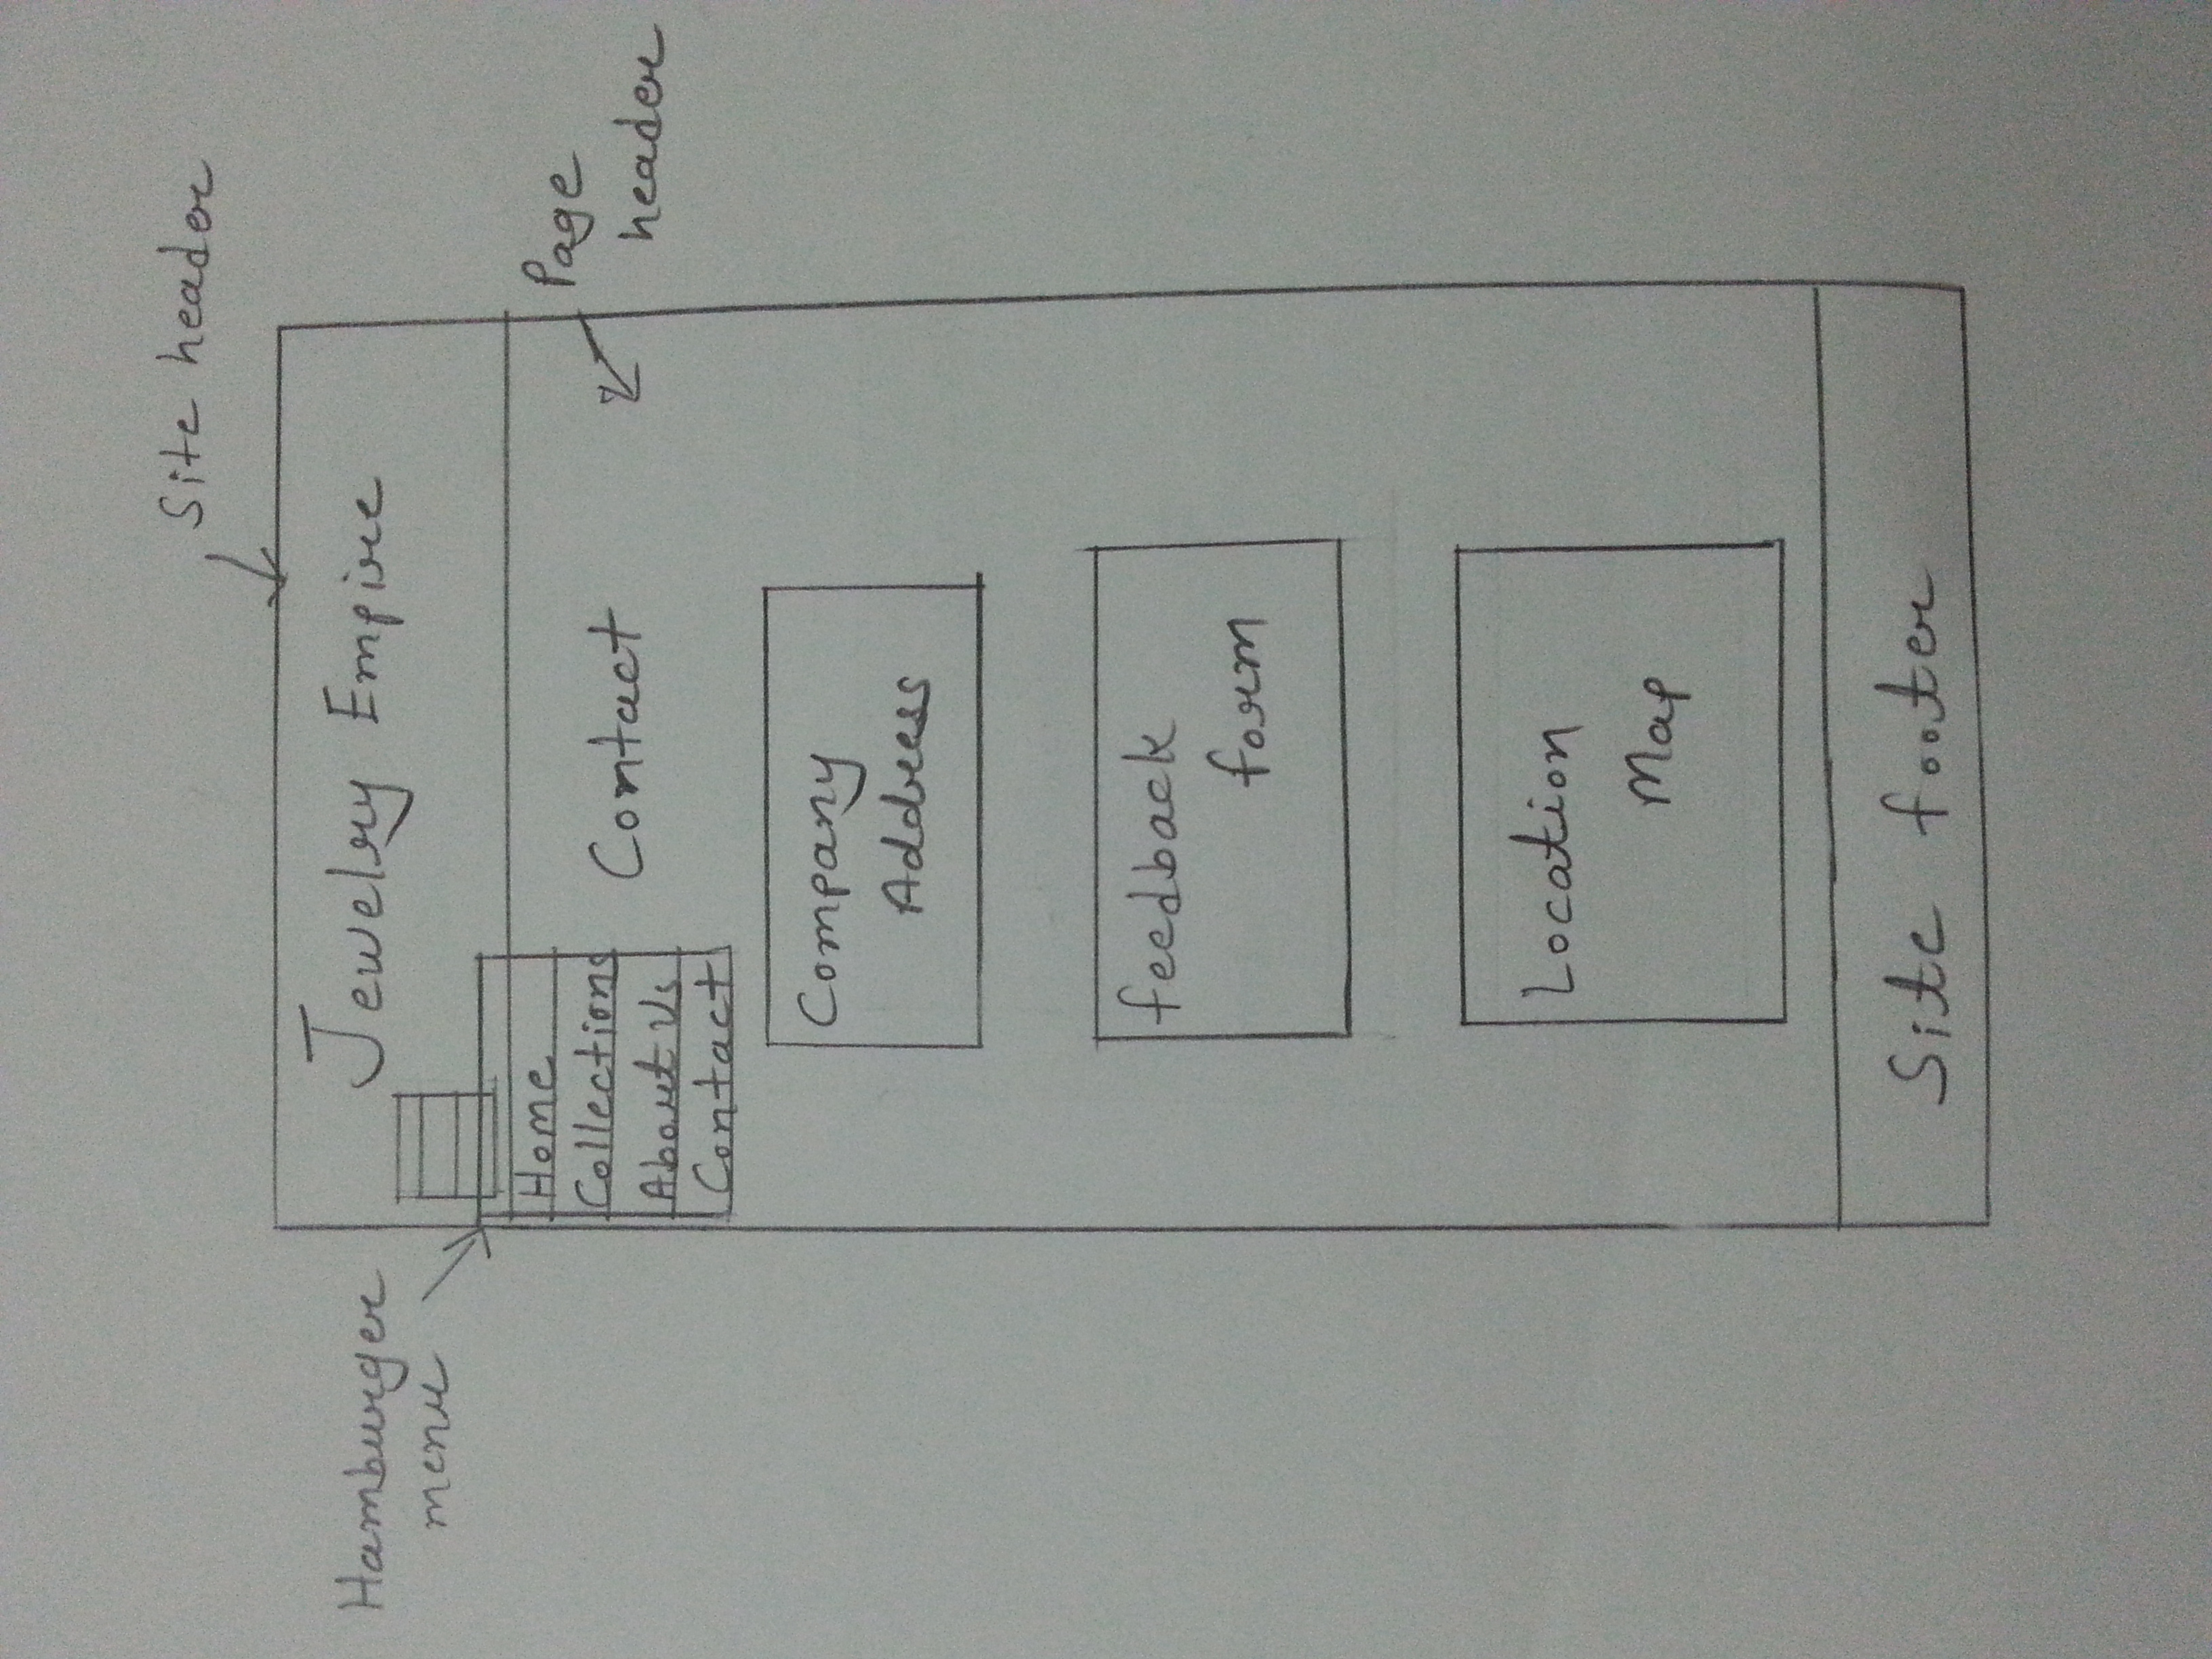 Site header
Jewelry Empire
Hamburger
menu
Home
Collections
About Us
Contact
Contact
Page
header
Company
Address
feedback
form
Location
Map
Site footer